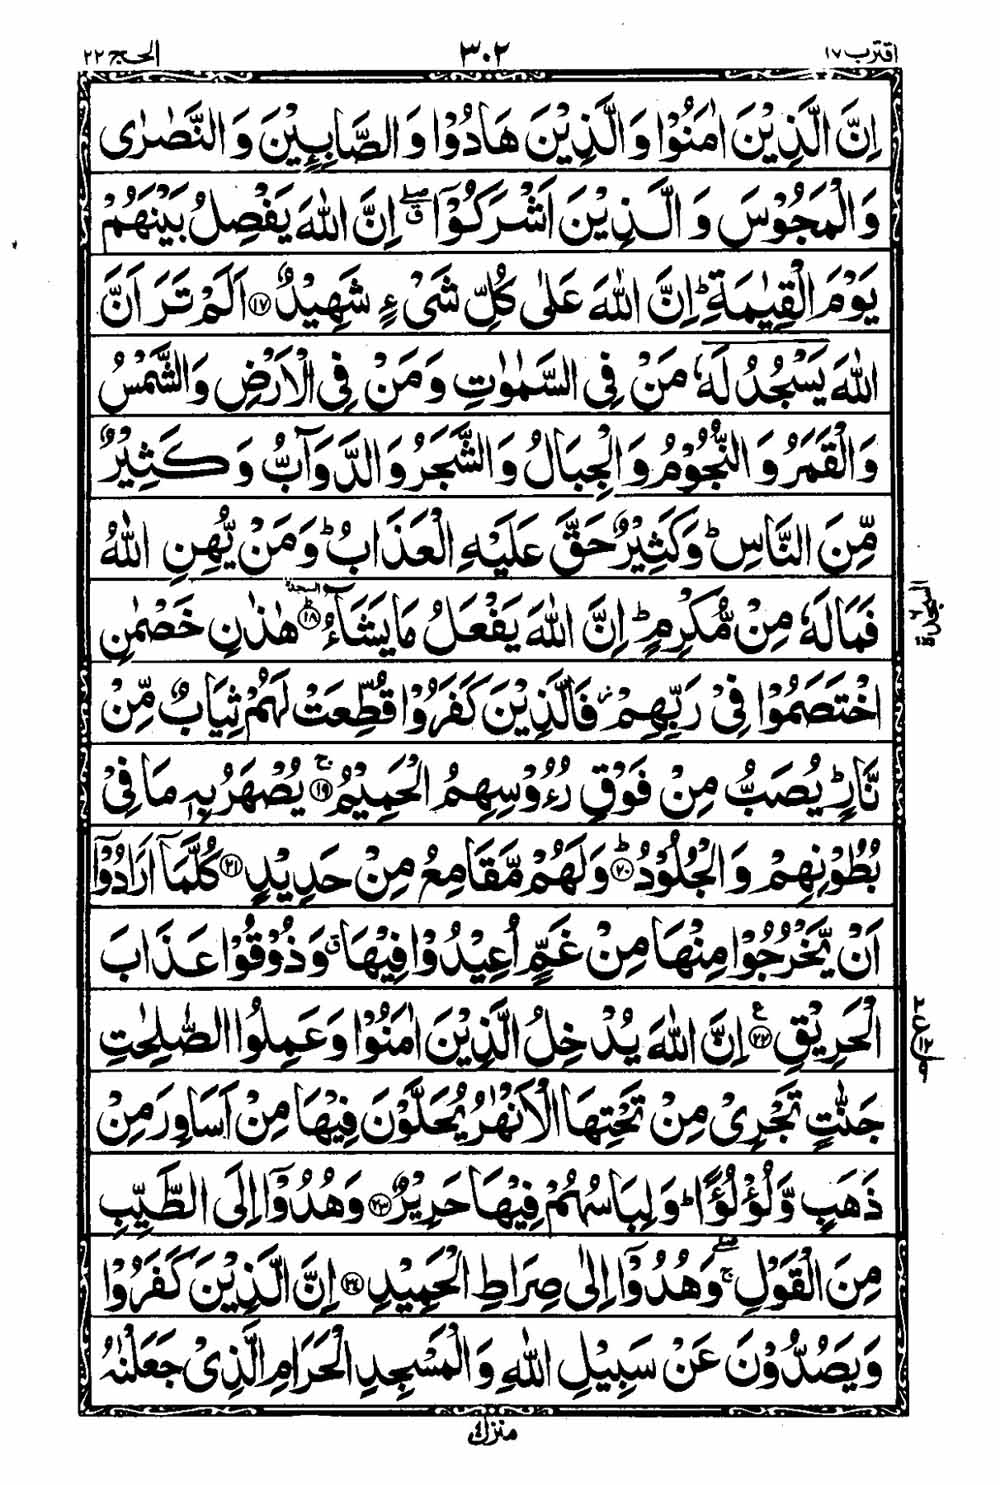 اقترب ۱۷
۳۰۲
الحج ۲۲
اِنَّ الَّذِيْنَ اٰمَنُوْا وَالَّذِيْنَ هَادُوْا وَالصَّابِـِٕيْنَ وَالنَّصٰرٰى
وَالْمَجُوْسَ وَالَّذِيْنَ اَشْرَكُوْۤا ۖق اِنَّ اللّٰهَ يَفْصِلُ بَيْنَهُمْ
يَوْمَ الْقِيٰمَةِ ؕ اِنَّ اللّٰهَ عَلٰى كُلِّ شَىْءٍ شَهِيْدٌ ۱۷ اَلَمْ تَرَ اَنَّ
اللّٰهَ يَسْجُدُ لَهٗ مَنْ فِى السَّمٰوٰتِ وَمَنْ فِى الْاَرْضِ وَالشَّمْسُ
وَالْقَمَرُ وَالنُّجُوْمُ وَالْجِبَالُ وَالشَّجَرُ وَالدَّوَآبُّ وَكَثِيْرٌ
مِّنَ النَّاسِ ؕ وَكَثِيْرٌ حَقَّ عَلَيْهِ الْعَذَابُ ؕ وَمَنْ يُّهِنِ اللّٰهُ
فَمَا لَهٗ مِنْ مُّكْرِمٍ ؕ اِنَّ اللّٰهَ يَفْعَلُ مَا يَشَآءُ ؕ ۱۸ السجدة هٰذٰنِ خَصْمٰنِ
السجدة ۶
اخْتَصَمُوْا فِىْ رَبِّهِمْ ز فَالَّذِيْنَ كَفَرُوْا قُطِّعَتْ لَهُمْ ثِيَابٌ مِّنْ
نَّارٍ ؕ يُصَبُّ مِنْ فَوْقِ رُءُوْسِهِمُ الْحَمِيْمُ ۚ ۱۹ يُصْهَرُ بِهٖ مَا فِىْ
بُطُوْنِهِمْ وَالْجُلُوْدُ ؕ ۲۰ وَلَهُمْ مَّقَامِعُ مِنْ حَدِيْدٍ ۲۱ كُلَّمَاۤ اَرَادُوْۤا
اَنْ يَّخْرُجُوْا مِنْهَا مِنْ غَمٍّ اُعِيْدُوْا فِيْهَا ق وَذُوْقُوْا عَذَابَ
الْحَرِيْقِ ع ۲۲ اِنَّ اللّٰهَ يُدْخِلُ الَّذِيْنَ اٰمَنُوْا وَعَمِلُوا الصّٰلِحٰتِ
جَنّٰتٍ تَجْرِىْ مِنْ تَحْتِهَا الْاَنْهٰرُ يُحَلَّوْنَ فِيْهَا مِنْ اَسَاوِرَ مِنْ
ذَهَبٍ وَّلُؤْلُؤًا ؕ وَلِبَاسُهُمْ فِيْهَا حَرِيْرٌ ۲۳ وَهُدُوْۤا اِلَى الطَّيِّبِ
مِنَ الْقَوْلِ ۖۚ وَهُدُوْۤا اِلٰى صِرَاطِ الْحَمِيْدِ ۲۴ اِنَّ الَّذِيْنَ كَفَرُوْا
وَيَصُدُّوْنَ عَنْ سَبِيْلِ اللّٰهِ وَالْمَسْجِدِ الْحَرَامِ الَّذِىْ جَعَلْنٰهُ
منزل ۴